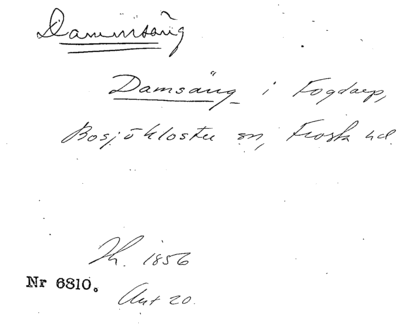 Dammsäng
Damsäng i Fogdarp,
Bosjökloster sn, Frosta hd.
Lh. 1856
Nr 6810.
Akt 20.